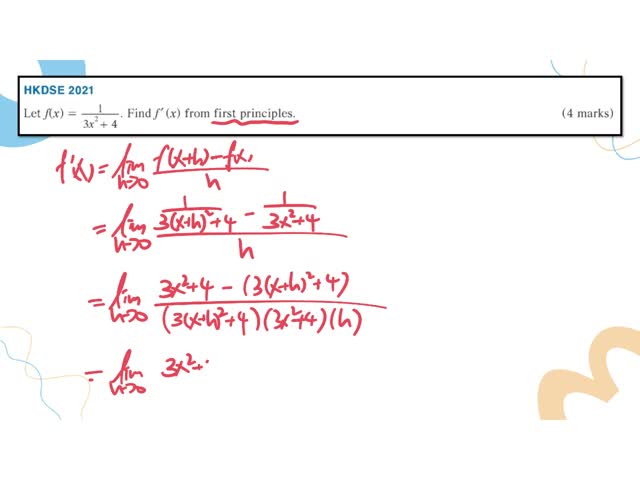 HKDSE 2021
Let f(x) = 1/(3x² + 4). Find f′(x) from first principles. (4 marks)
f'(x) = lim h→0 (f(x+h) − f(x))/h
= lim h→0 (1/(3(x+h)²+4) − 1/(3x²+4))/h
= lim h→0 (3x²+4 − (3(x+h)²+4))/((3(x+h)²+4)(3x²+4)(h))
= lim h→0 3x²+